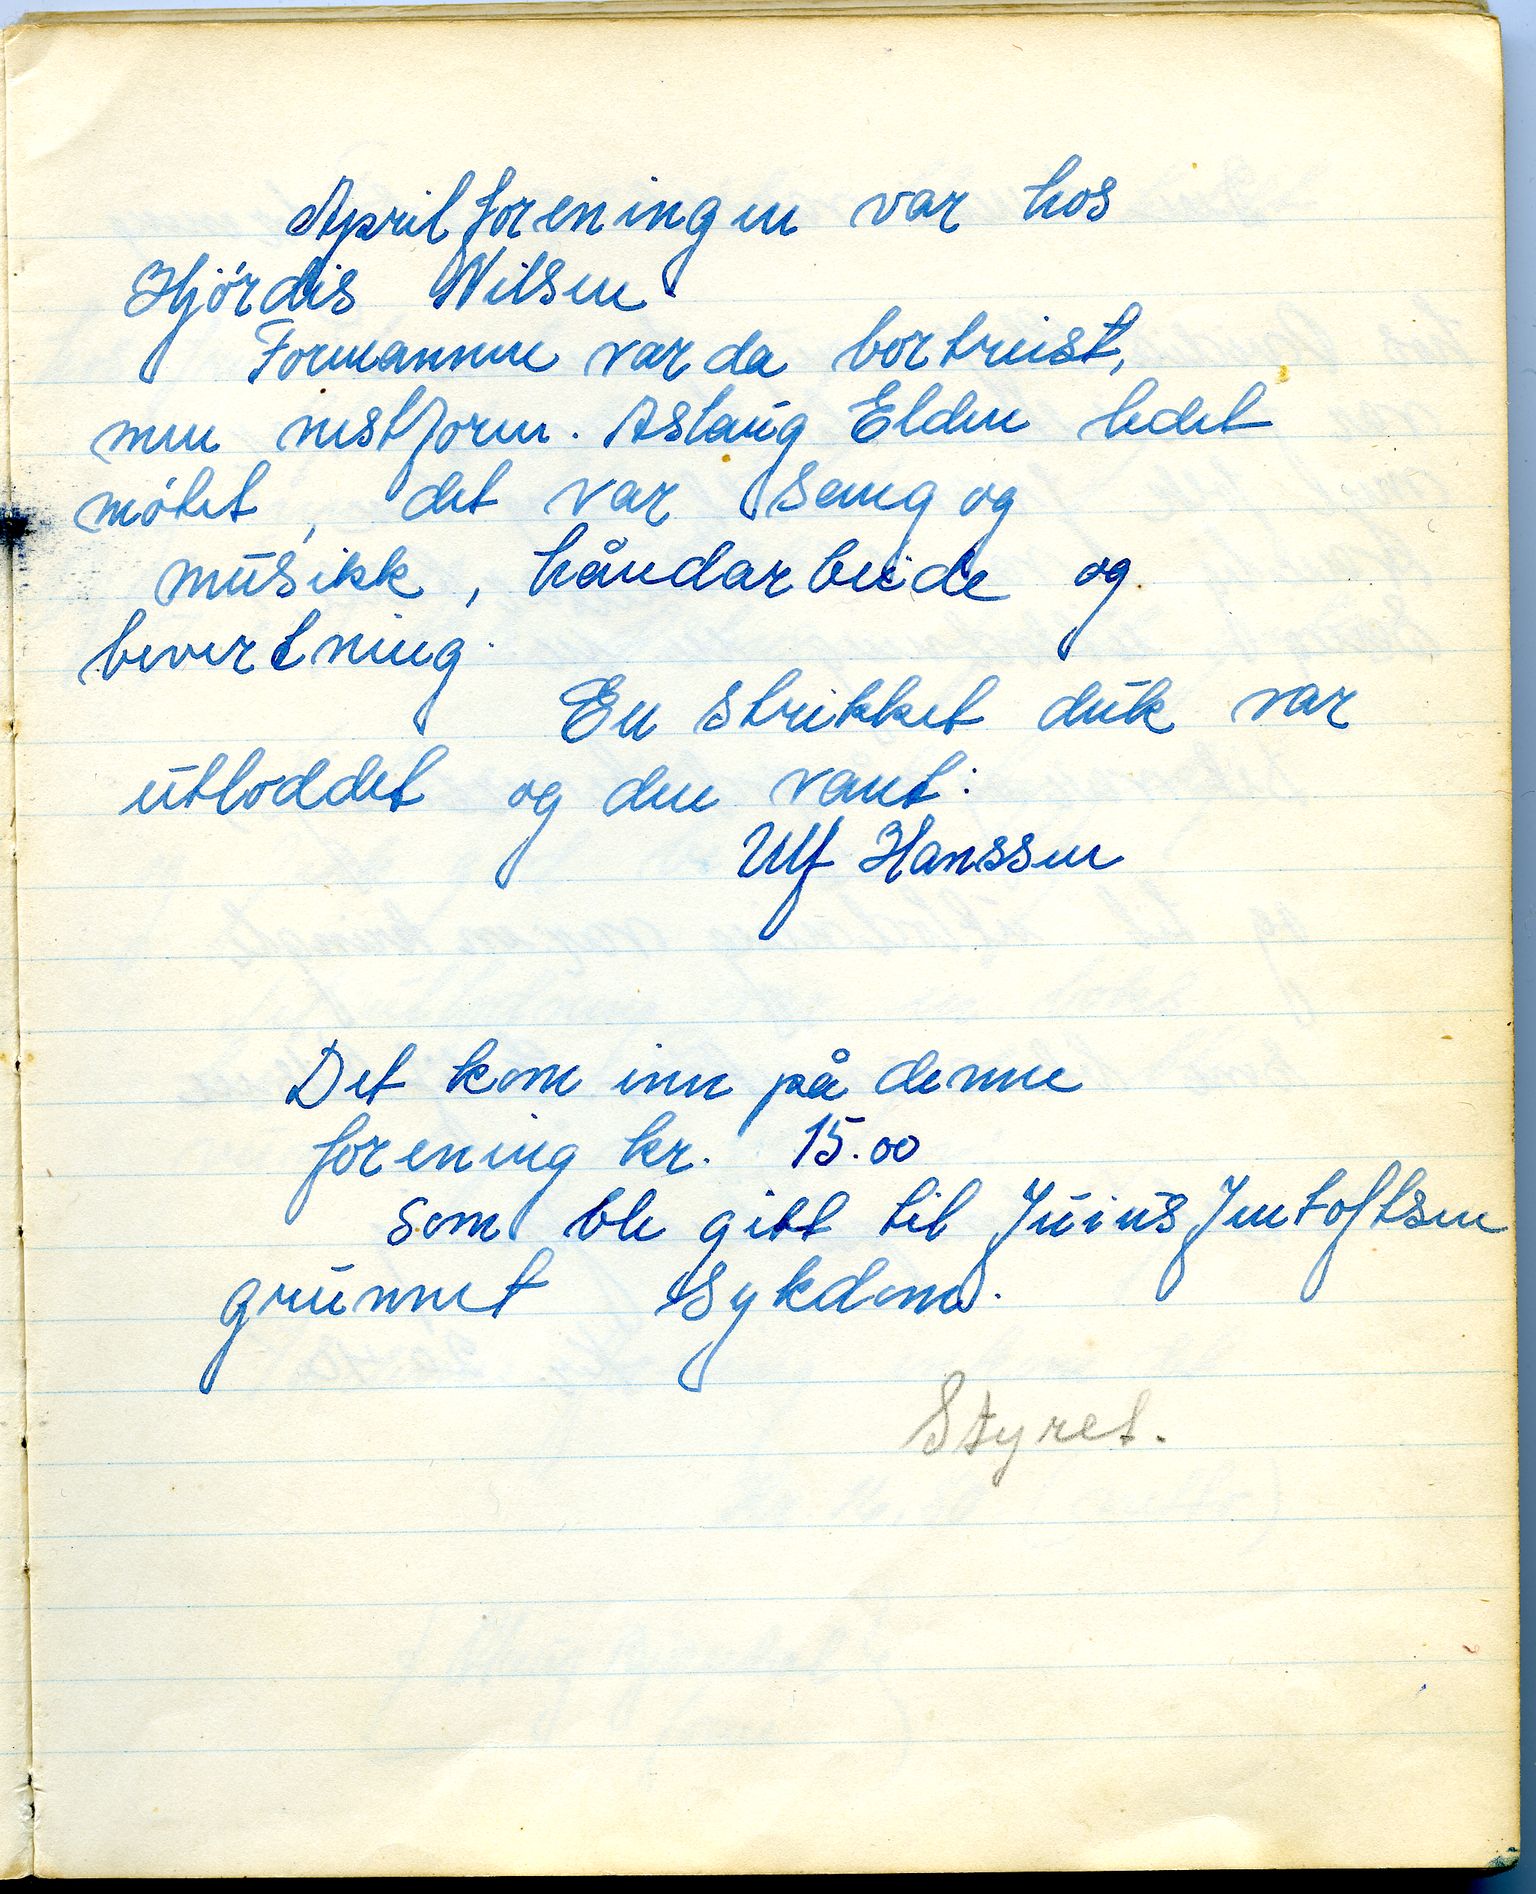 Aprilforeningen var hos
Hjördis Nilsen
Formannen var da bortreist,
men nestform. Aslaug Elden ledet
møtet, det var sang og
musikk, håndarbeide og
bevertning.
En strikket duk var
utloddet og den vant:
Ulf Hanssen
Det kom inn på denne
forening kr. 15.00
som ble gitt til Jentoftsen
grunnet sykdom.
Styret.